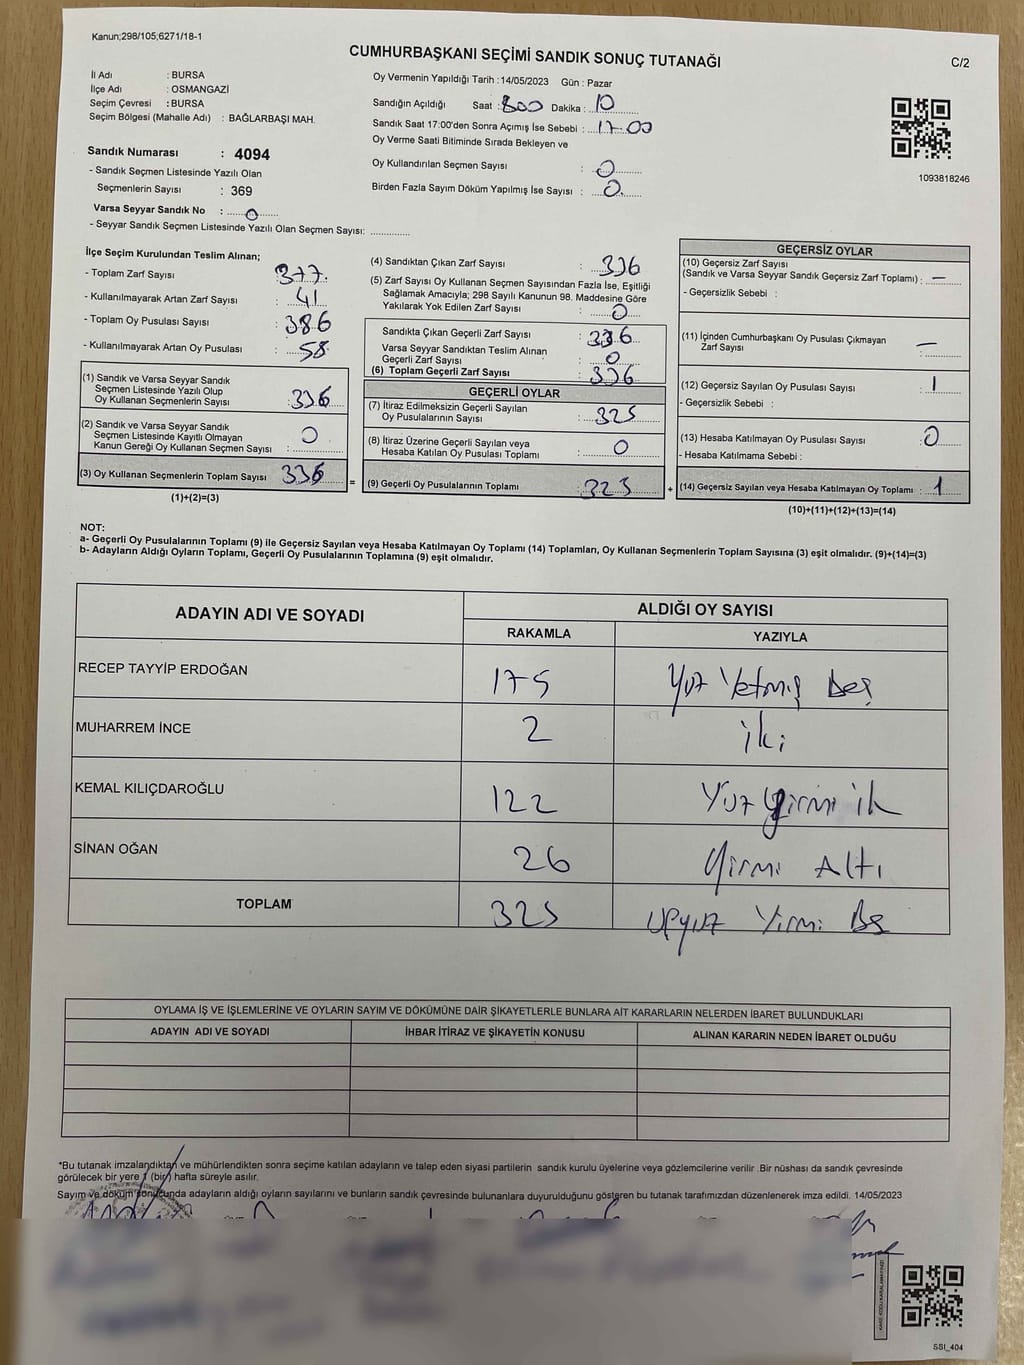 Kanun;298/105;6271/18-1
CUMHURBAŞKANI SEÇİMİ SANDIK SONUÇ TUTANAĞI
C/2
İl Adı : BURSA
İlçe Adı : OSMANGAZİ
Seçim Çevresi : BURSA
Seçim Bölgesi (Mahalle Adı) : BAĞLARBAŞI MAH.
Sandık Numarası : 4094
- Sandık Seçmen Listesinde Yazılı Olan
Seçmenlerin Sayısı : 369
Varsa Seyyar Sandık No : 0
- Seyyar Sandık Seçmen Listesinde Yazılı Olan Seçmen Sayısı:
Oy Vermenin Yapıldığı Tarih :14/05/2023 Gün : Pazar
Sandığın Açıldığı Saat : 800 Dakika : 10
Sandık Saat 17:00'den Sonra Açımış İse Sebebi : 17.00
Oy Verme Saati Bitiminde Sırada Bekleyen ve
Oy Kullandırılan Seçmen Sayısı : 0
Birden Fazla Sayım Döküm Yapılmış İse Sayısı : 0
1093818246
İlçe Seçim Kurulundan Teslim Alınan;
- Toplam Zarf Sayısı : 377
- Kullanılmayarak Artan Zarf Sayısı : 41
- Toplam Oy Pusulası Sayısı : 386
- Kullanılmayarak Artan Oy Pusulası : 58
(1) Sandık ve Varsa Seyyar Sandık
Seçmen Listesinde Yazılı Olup
Oy Kullanan Seçmenlerin Sayısı : 336
(2) Sandık ve Varsa Seyyar Sandık
Seçmen Listesinde Kayıtlı Olmayan
Kanun Gereği Oy Kullanan Seçmen Sayısı : 0
(3) Oy Kullanan Seçmenlerin Toplam Sayısı 336
(1)+(2)=(3)
=
(4) Sandıktan Çıkan Zarf Sayısı : 336
(5) Zarf Sayısı Oy Kullanan Seçmen Sayısından Fazla İse, Eşitliği
Sağlamak Amacıyla; 298 Sayılı Kanunun 98. Maddesine Göre
Yakılarak Yok Edilen Zarf Sayısı : 0
Sandıkta Çıkan Geçerli Zarf Sayısı : 336
Varsa Seyyar Sandıktan Teslim Alınan
Geçerli Zarf Sayısı : 0
(6) Toplam Geçerli Zarf Sayısı : 336
GEÇERLİ OYLAR
(7) İtiraz Edilmeksizin Geçerli Sayılan
Oy Pusulalarının Sayısı : 325
(8) İtiraz Üzerine Geçerli Sayılan veya
Hesaba Katılan Oy Pusulası Toplamı : 0
(9) Geçerli Oy Pusulalarının Toplamı : 325
+
GEÇERSİZ OYLAR
(10) Geçersiz Zarf Sayısı
(Sandık ve Varsa Seyyar Sandık Geçersiz Zarf Toplamı) : —
- Geçersizlik Sebebi :
(11) İçinden Cumhurbaşkanı Oy Pusulası Çıkmayan
Zarf Sayısı : —
(12) Geçersiz Sayılan Oy Pusulası Sayısı : 1
- Geçersizlik Sebebi :
(13) Hesaba Katılmayan Oy Pusulası Sayısı : 0
- Hesaba Katılmama Sebebi :
(14) Geçersiz Sayılan veya Hesaba Katılmayan Oy Toplamı : 1
(10)+(11)+(12)+(13)=(14)
NOT:
a- Geçerli Oy Pusulalarının Toplamı (9) ile Geçersiz Sayılan veya Hesaba Katılmayan Oy Toplamı (14) Toplamları, Oy Kullanan Seçmenlerin Toplam Sayısına (3) eşit olmalıdır. (9)+(14)=(3)
b- Adayların Aldığı Oyların Toplamı, Geçerli Oy Pusulalarının Toplamına (9) eşit olmalıdır.
ADAYIN ADI VE SOYADI
ALDIĞI OY SAYISI
RAKAMLA YAZIYLA
RECEP TAYYİP ERDOĞAN 175 Yüz Yetmiş Beş
MUHARREM İNCE 2 iki
KEMAL KILIÇDAROĞLU 122 Yüz Yirmi ik
SİNAN OĞAN 26 Yirmi Altı
TOPLAM 325 üçyüz Yirmi Beş
OYLAMA İŞ VE İŞLEMLERİNE VE OYLARIN SAYIM VE DÖKÜMÜNE DAİR ŞİKAYETLERLE BUNLARA AİT KARARLARIN NELERDEN İBARET BULUNDUKLARI
ADAYIN ADI VE SOYADI İHBAR İTİRAZ VE ŞİKAYETİN KONUSU ALINAN KARARIN NEDEN İBARET OLDUĞU
*Bu tutanak imzalandıktan ve mühürlendikten sonra seçime katılan adayların ve talep eden siyasi partilerin sandık kurulu üyelerine veya gözlemcilerine verilir .Bir nüshası da sandık çevresinde
görülecek bir yere 1 (bir) hafta süreyle asılır.
Sayım ve döküm sonucunda adayların aldığı oyların sayılarını ve bunların sandık çevresinde bulunanlara duyurulduğunu gösteren bu tutanak tarafımızdan düzenlenerek imza edildi. 14/05/2023
SSI_404